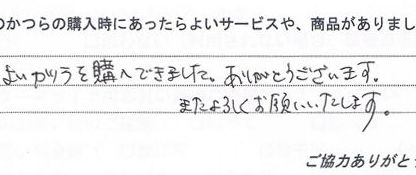 のかつらの購入時にあったらよいサービスや、商品がありまし
よいかつらを購入できました。ありがとうございます。
またよろしくお願いいたします。
ご協力ありがと